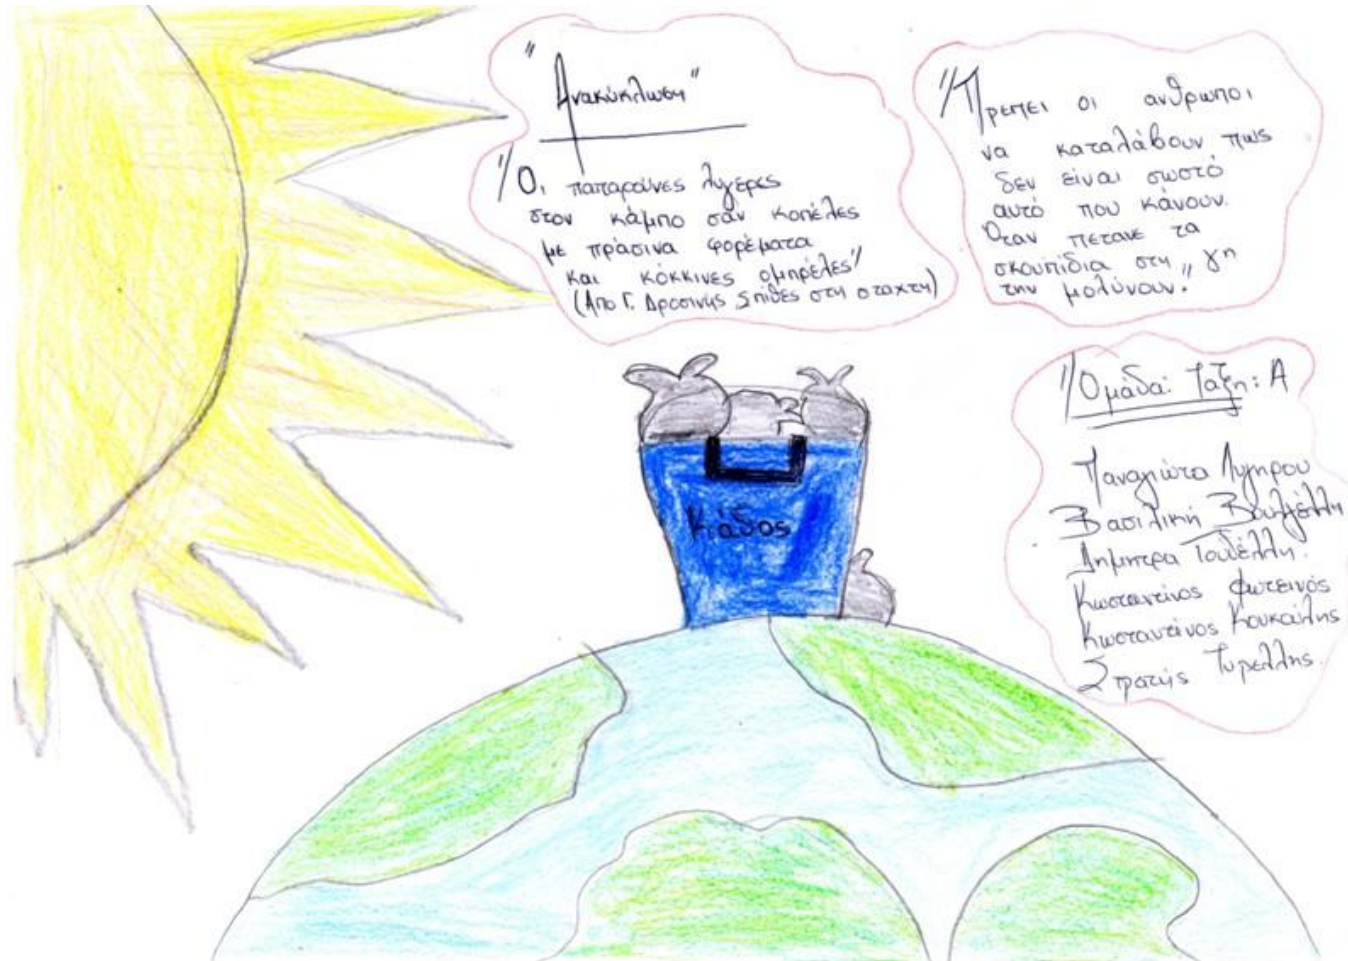 "Ανακύκλωση"
"Οι παπαρούνες λυγερές
στον κάμπο σαν κοπέλες
με πράσινα φορέματα
και κόκκινες ομπρέλες"
(Απο Γ. Δροσινης Σπίθες στη σταχτη)
"Πρεπει οι ανθρωποι
να καταλάβουν πως
δεν είναι σωστό
αυτό που κάνουν.
Όταν πετανε τα
σκουπίδια στη γη
την μολύνουν."
"Ομάδα: Τάξη: Α
Παναγιώτα Λυγηρου
Βασιλική Βουλγέλλη
Δημητρα
Κωσταντίνος Φωτεινός
Κωσταντίνος Κουκούλης
Στρατής Τυρέλλης.
Κάδος